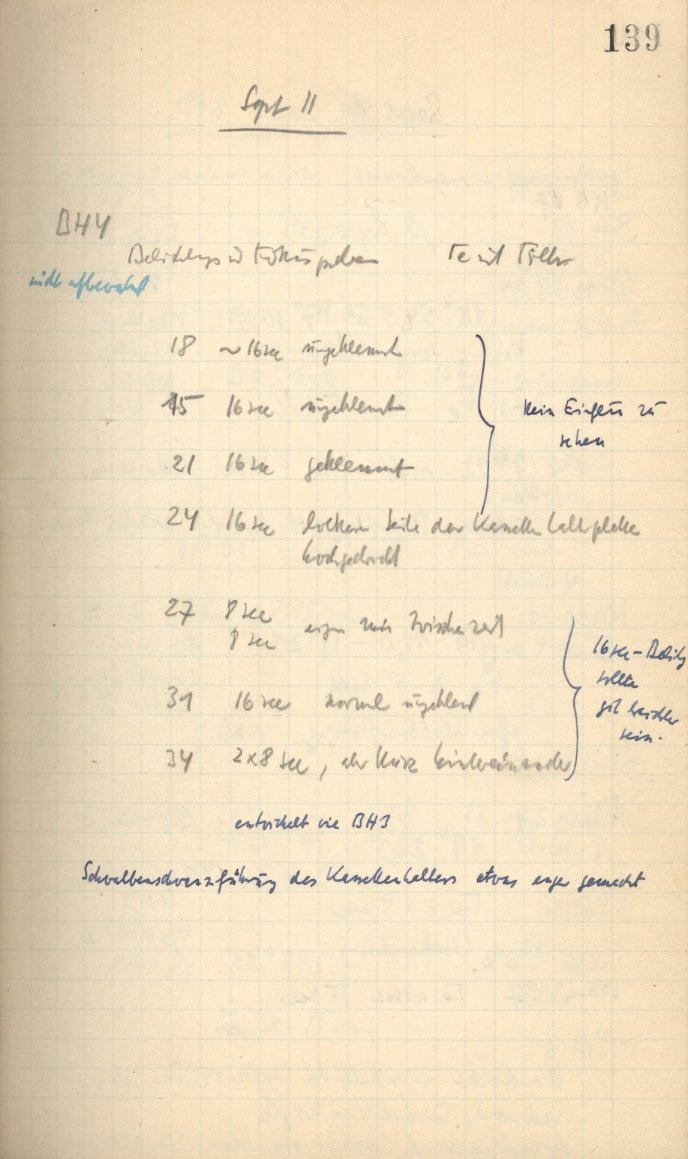 139
Sept 11
BH4
Belichtungs u Fokusproben Fe mit Filter
nicht aufbewahrt
18 ~16 sec ungeklemmt
15 16 sec ungeklemmt
21 16 sec geklemmt
kein Einfluss zu
sehen
24 16 sec Seite der Kassettenhalteplatte
hochgedreht
27 8 sec
8 sec Zwischenzeit
31 16 sec normal ungeklemmt
34 2x8 sec, aber kurz hintereinander
16 sec - Belichtg
sollte
sein.
entwickelt wie BH3
Schwalbenschwanzführung des Kassettenhalters etwas enger gemacht